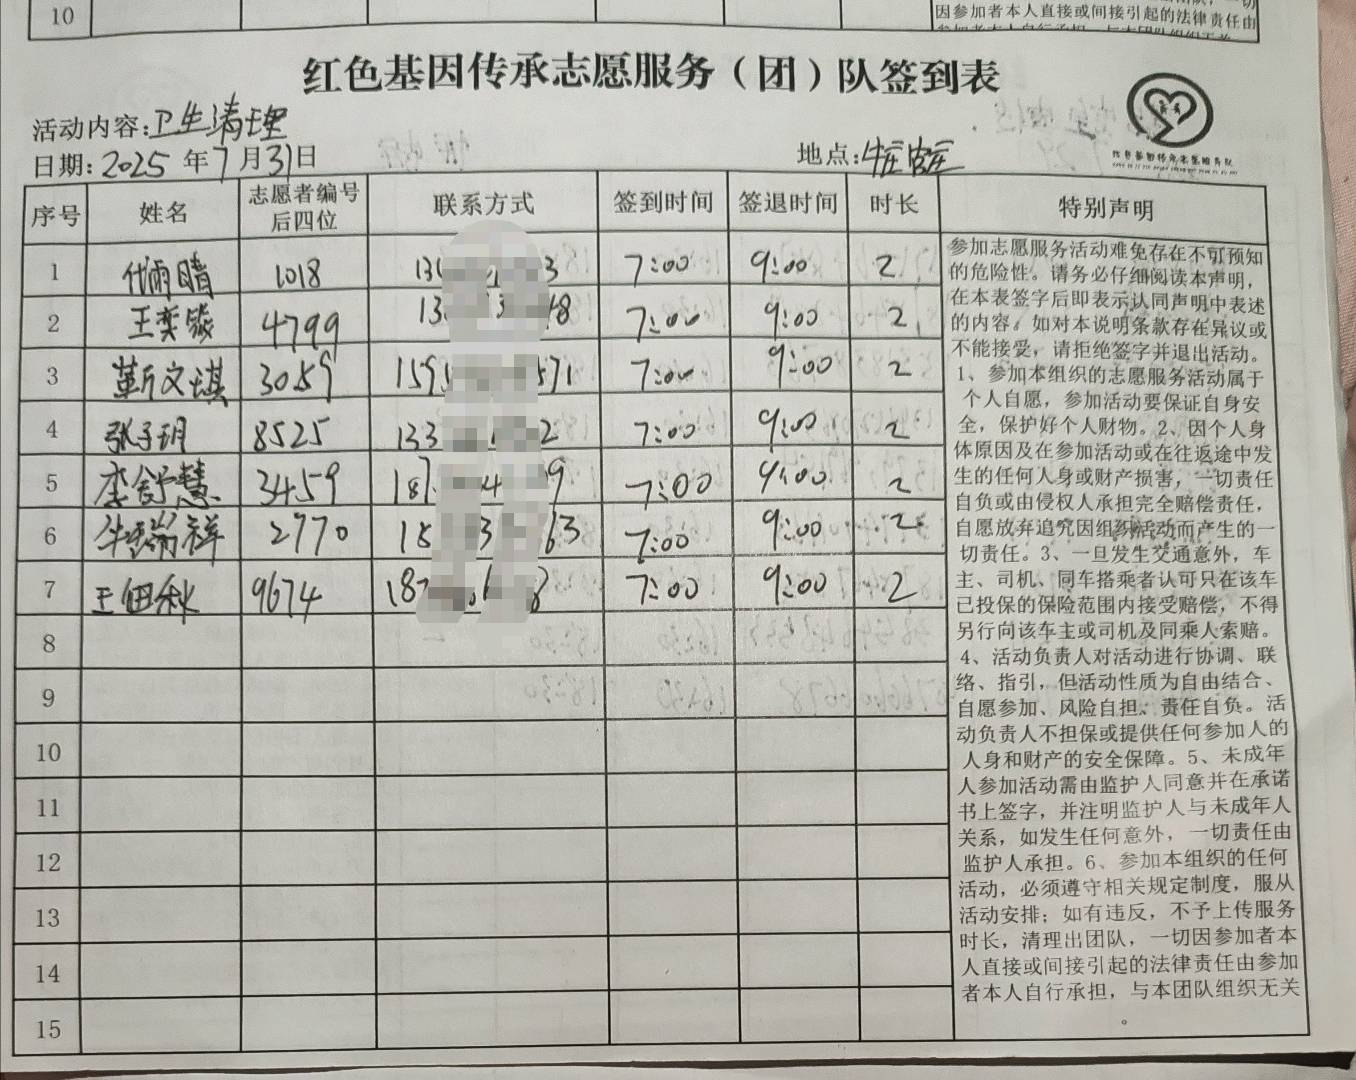 10
因参加者本人直接或间接引起的法律责任由
红色基因传承志愿服务（团）队签到表
活动内容:卫生清理
日期:2025年7月31日
地点:
序号 姓名 志愿者编号后四位 联系方式 签到时间 签退时间 时长 特别声明
1 代雨晴 1018 13 3 7:00 9:00 2
2 王奕 4799 13 3 8 7:00 9:00 2
3 靳文琪 3059 159 571 7:00 9:00 2
4 张子玥 8525 133 2 7:00 9:00 2
5 李舒慧 3459 187 4 9 7:00 9:00 2
6 牛瑞祥 2770 18 3 63 7:00 9:00 2
7 王佃秋 9674 187 6 8 7:00 9:00 2
8
9
10
11
12
13
14
15
参加志愿服务活动难免存在不可预知
的危险性。请务必仔细阅读本声明，
在本表签字后即表示认同声明中表述
的内容。如对本说明条款存在异议或
不能接受，请拒绝签字并退出活动。
1、参加本组织的志愿服务活动属于
个人自愿，参加活动要保证自身安
全，保护好个人财物。2、因个人身
体原因及在参加活动或在往返途中发
生的任何人身或财产损害，一切责任
自负或由侵权人承担完全赔偿责任，
自愿放弃追究因组织活动而产生的一
切责任。3、一旦发生交通意外，车
主、司机、同车搭乘者认可只在该车
已投保的保险范围内接受赔偿，不得
另行向该车主或司机及同乘人索赔。
4、活动负责人对活动进行协调、联
络、指引，但活动性质为自由结合、
自愿参加、风险自担、责任自负。活
动负责人不担保或提供任何参加人的
人身和财产的安全保障。5、未成年
人参加活动需由监护人同意并在承诺
书上签字，并注明监护人与未成年人
关系，如发生任何意外，一切责任由
监护人承担。6、参加本组织的任何
活动，必须遵守相关规定制度，服从
活动安排；如有违反，不予上传服务
时长，清理出团队，一切因参加者本
人直接或间接引起的法律责任由参加
者本人自行承担，与本团队组织无关
。